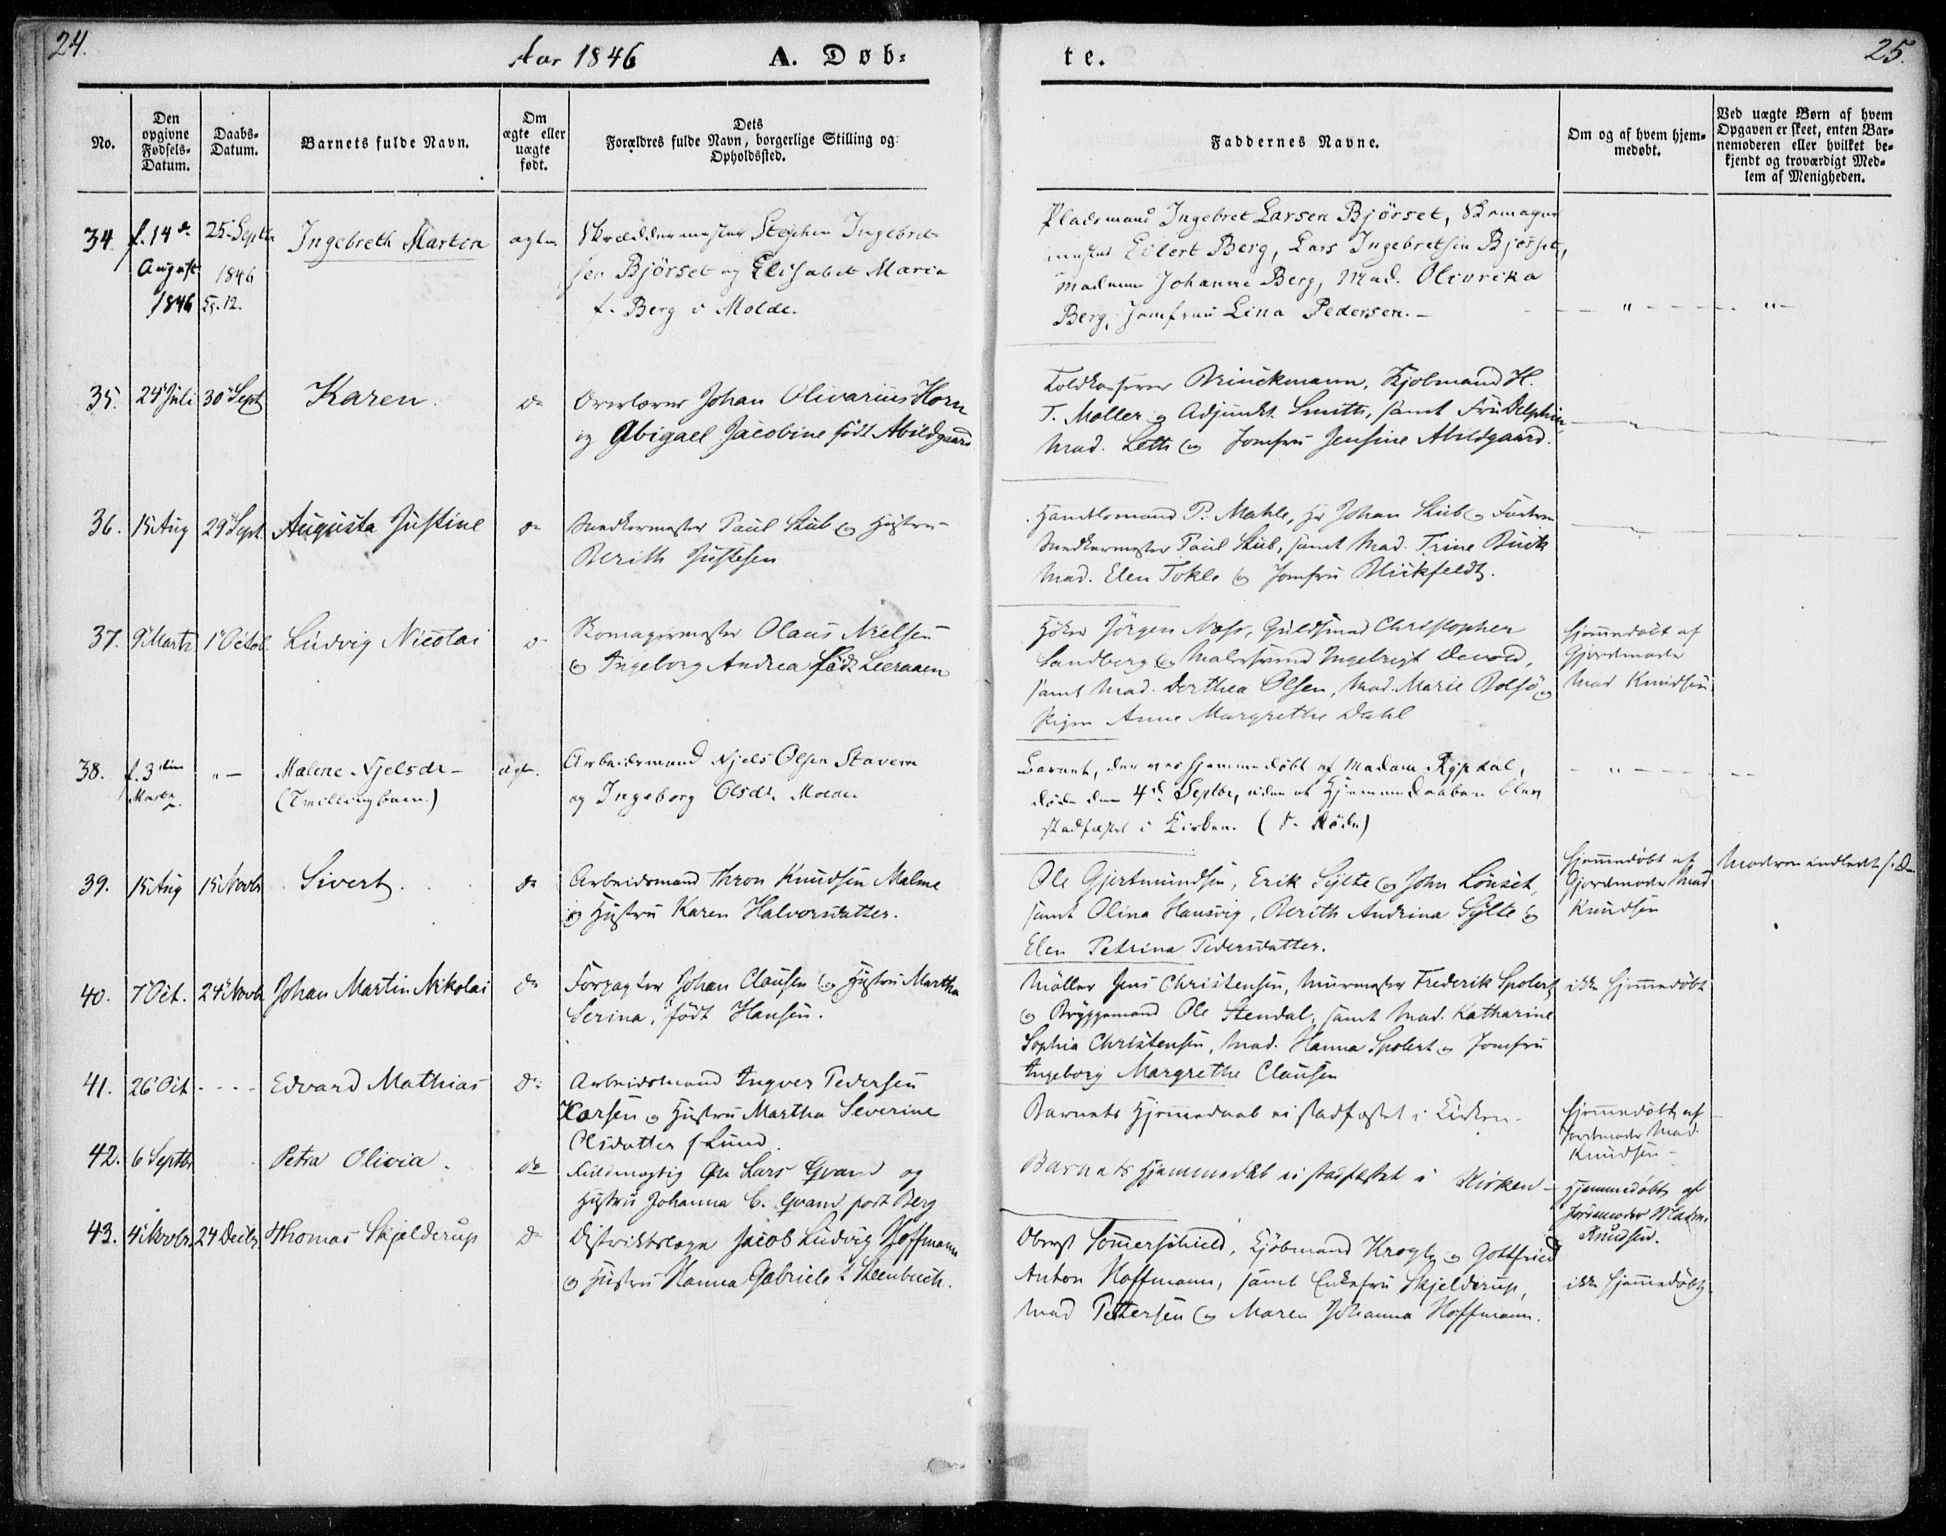 24.
Aar 1846
A. Døb-
te.
25.
No.
Den opgivne Fødsels-Datum.
Daabs-Datum.
Barnets fulde Navn.
Om ægte eller uægte født.
Dets Forældres fulde Navn, borgerlige Stilling og Opholdssted.
Faddernes Navne.
Om og af hvem hjem-medøbt.
Ved uægte Børn af hvem Opgaven er skeet, enten Bar-nemoderen eller hvilket be-kjendt og troværdigt Med-lem af Menigheden.
34. f. 14de August 1846
25. Septbr 1846
Ingebreth Martin
ægte
Skræddermester Stephen Ingebret-
sen Bjørset og Elisabet Maria
f. Berg i Molde.
Pladsmand Ingebret Larsen Bjørset, Skomager
mester Eilert Berg, Lars Ingebretsen Bjørset,
Madame Johanne Berg, Mad. Olivrika
Berg, Jomfrue Lina Pedersen.
35. 24 Juli 30 Sept Karen. do
Overlærer Johan Olivarius Horn
og Abigael Jacobine født Abildgaard
Toldkasserer Brinckmann, Kjøbmand H.
T. Møller og Adjunkt Smith, samt Fru Delphin,
Mad. Leth og Jomfru Jensine Abildgaard.
36. 15 Aug 29 Sept. Augusta Justine do
Snedkermester Paul Stub og Hustru
Berith Justesen
Handelsmand P. Mahle, Hr Johan Stub og Faderen
Snedkermester Paul Stub, samt Mad. Trine Buch
Mad. Elen Tokle og Jomfru Blickfeldt.
37. 9 Marts 1 Octob. Ludvig Nicolai
Skomagermester Olaus Nielsen
og Ingeborg Andrea født Leeraaen
Høker Jørgen Næss, Guldsmed Christopher
Sandberg og Malersvend Ingebrigt Devold,
samt Mad. Dorthea Olsen, Mad. Marie Bolsø og
Pigen Anne Margrethe Dahl
hjemmedøbt af
Gjordmoder
Mad Knudsen
38. f. 3die
Malene Njelsdr
(Tvillingbarn.)
ægte.
Arbeidsmand Njels Olsen Staveren
og Ingeborg Olsdr. Molde.
Barnet, der var hjemmedøbt af Madam Rypdal,
døde den 4de Septbr, uden at Hjemmedaaben blev
stadfæstet i Kirken. (s. Døde)
39. 15 Aug 15 Novbr Sivert. do
Arbeidsmand Thron Knudsen Malme
og Hustru Karen Halvorsdatter.
Ole Gjertmundsen, Erik Sylte og John Lønset,
samt Olina Hansvig, Berith Andrina Sylte og
Elen Petrina Pedersdatter.
hjemmedøbt af
Gjordmoder Mad
Knudsen
Moderen indledt s. D.
40. 7 Oct. 24 Novbr Johan Martin Nikolai do
Forpagter Johan Clausen og Hustru Martha
Serina, født Hansen.
Møller Jens Christensen, Muurmester Frederik Spolert
og Bryggemand Ole Stendal, samt Mad. Katharine
Sophia Christensen, Mad. Hanna Spolert og Jomfru
Ingeborg Margrethe Clausen
ikke hjemmedøbt
41. 26 Oct Edvard Mathias do
Arbeidsmand Ingver Pedersen
Korsen og Hustru Martha Severine
Olsdatter f Lund.
Barnets Hjemmedaab ei stadfæstet i Kirken
hjemmedøbt af
Jordmoder Mad.
Knudsen
42. 6 Septbr Petra Olivia. do
Fuldmægtig Lars Qvand og
Hustru Johanna C. Qvand født Berg
Barnets Hjemmedåb ei stadfæstet i Kirken
Hjemmedøbt af
Jordemoder Madm.
Knudsen.
43. 4 Novbr. 24 Decbr. Thomas Skjelderup do
Distriktslæge Jacob Ludvig Hoffmann
og Hustru Hanna Gabriele f. Steenbuch.
Oberst Sommerschield, Kjøbmand Krogh og Gottfried
Anton Hoffmann, samt Enkefru Skjelderup,
Mad Pettersen og Maren Johanna Hoffmann.
ikke hjemmedøbt